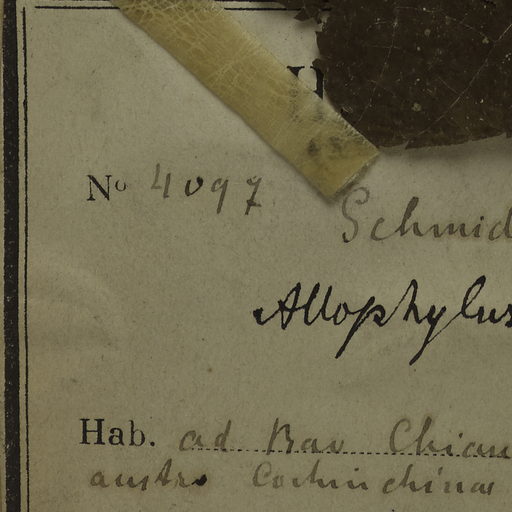 No 4097
Schmid
Allophylus
Hab. ad Bav Chian
austro Cochinchinae